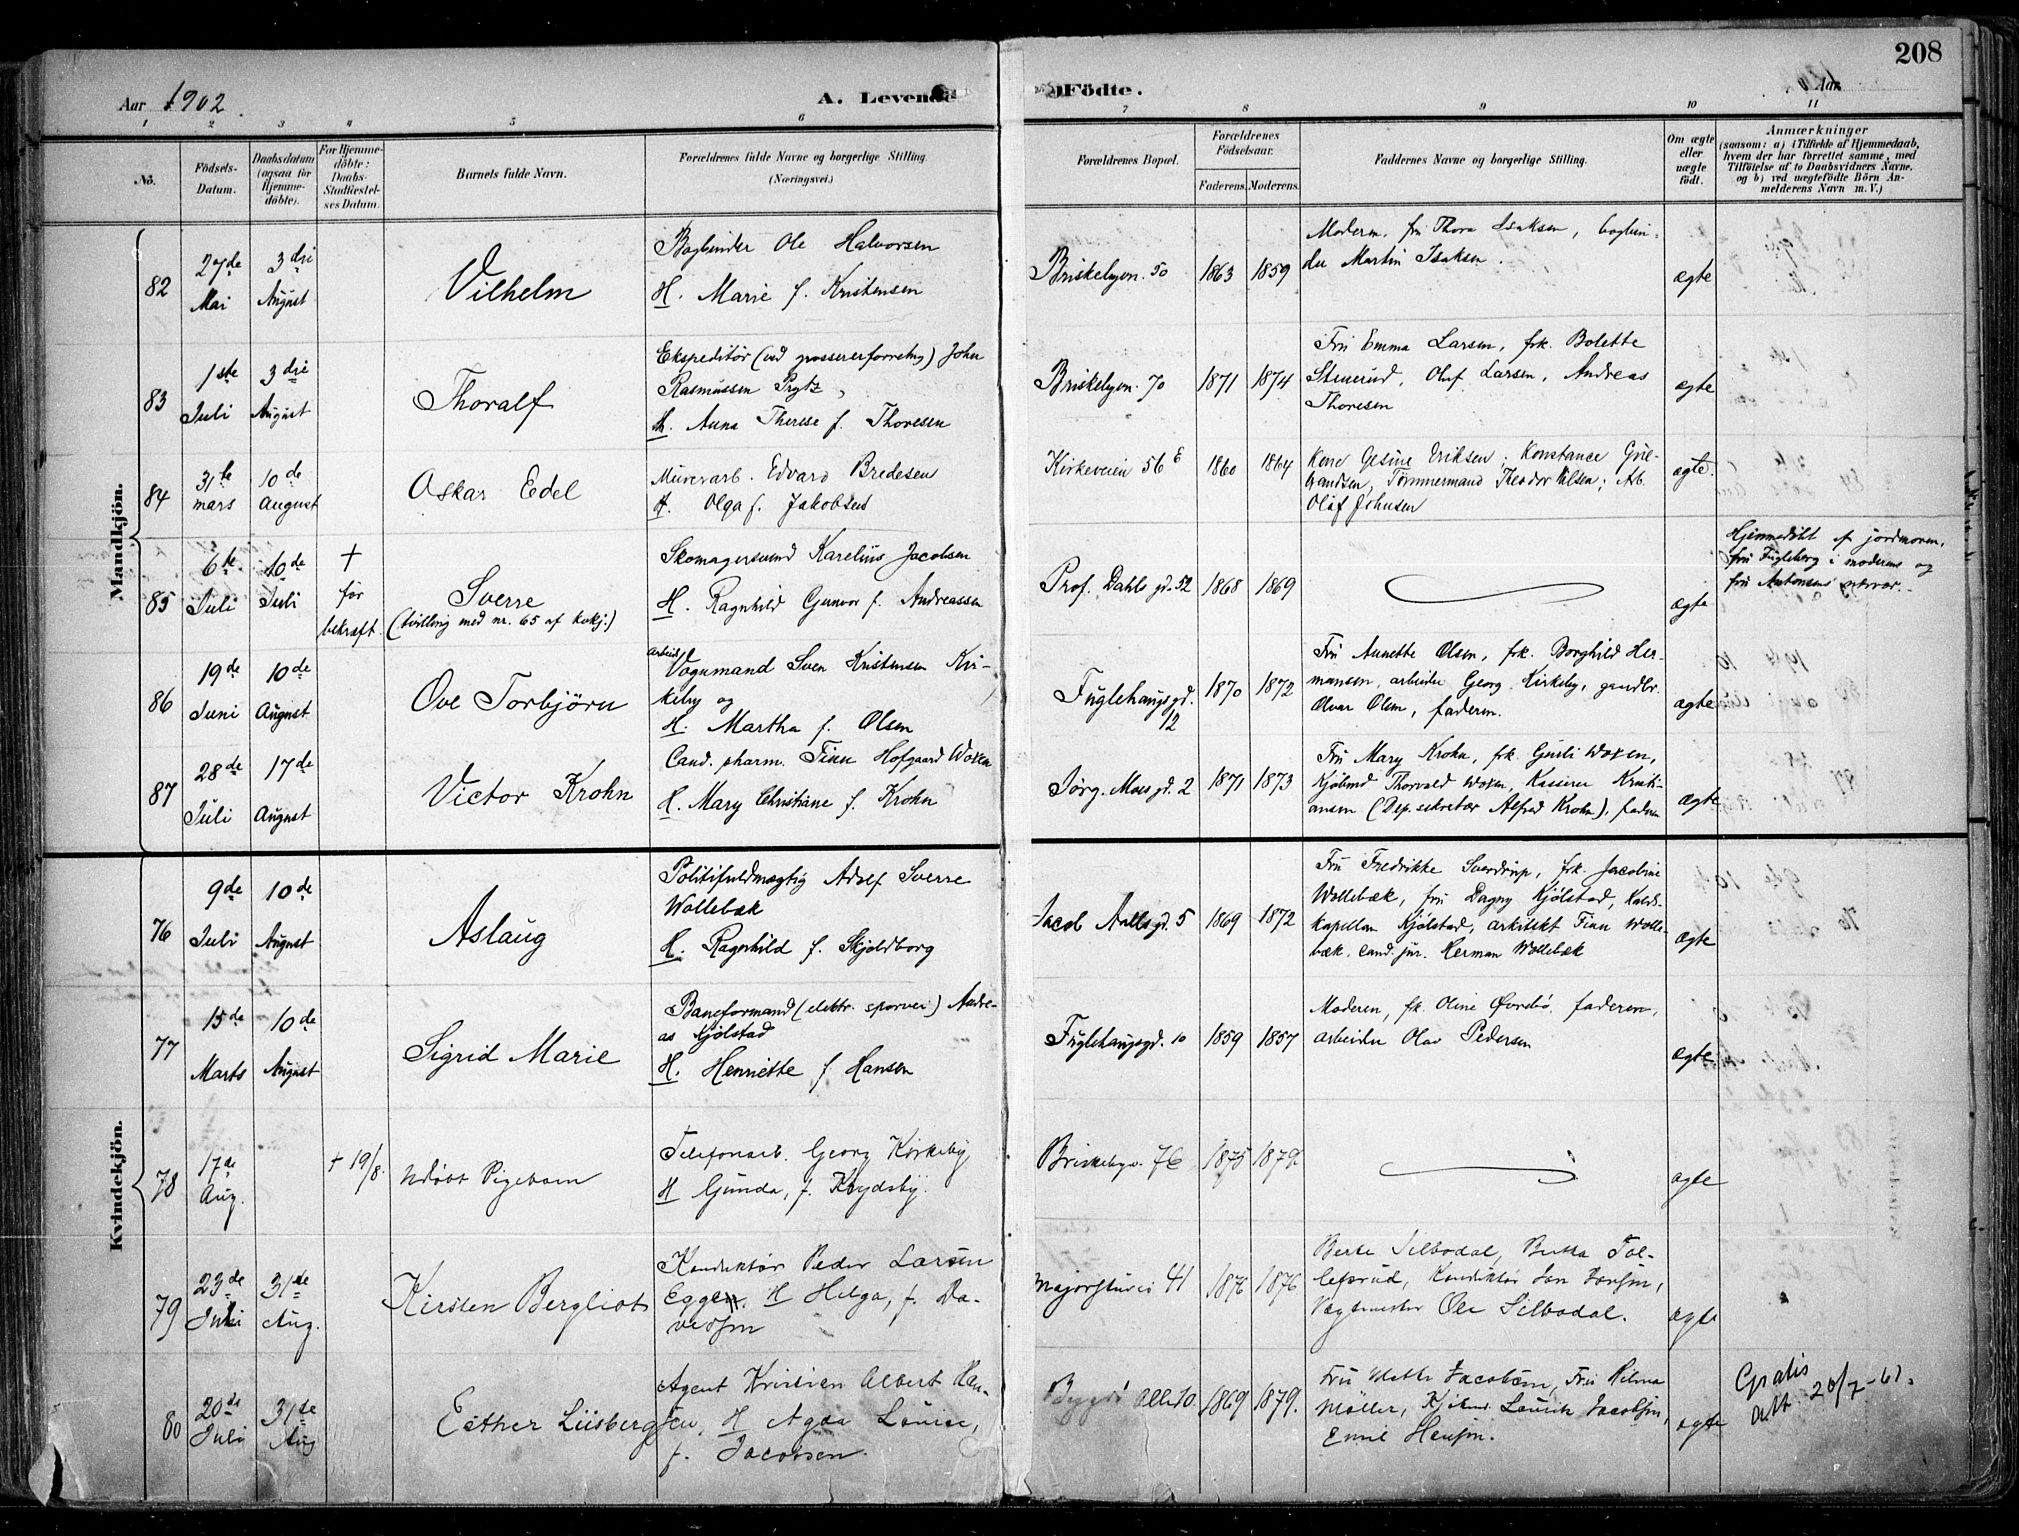 208
Aar 1902.
A. Levende
Födte.
Aar
1 2 3 4 5 6 7 8 9 10 11
No.
Födsels-
Datum.
Daabsdatum
(ogsaa for
Hjemme-
döbte).
For Hjemme-
döbte:
Daabs-
Stadfæstel-
ses Datum.
Barnets fulde Navn.
Forældrenes fulde Navne og borgerlige Stilling
(Næringsvei.)
Forældrenes Bopæl.
Forældrenes
Födselsaar.
Faderens. Moderens.
Faddernes Navne og borgerlige Stilling.
Om ægte
eller
uægte
födt.
Anmærkninger
(saasom: a) i Tilfælde af Hjemmedaab,
hvem der har forrettet samme, med
Tilföielse af to Daabsvidners Navne.
og b) ved uægtefödte Börn An-
melderens Navn m. V.)
Mandkjön.
82
27de
Mai
3die
August
Vilhelm
Bogbinder Ole Halvorsen
H. Marie f. Kristensen
Briskebyvn. 50
1863 1859
Moderen, fru Thora Isaksen, bogbin-
der Martin Isaksen.
ægte
83
1ste
Juli
3die
August
Thoralf
Ekspeditør (ved grossererforretng) John
Rasmussen Prytz,
H. Anna Therese f. Thoresen
Briskebyvn. 70
1871 1874
Fru Emma Larsen, frk. Bolette
Stenerud, Oluf Larsen, Andreas
Thoresen
ægte
84
31te
mars
10de
August
Oskar Edel
Murerarb. Edvard Bredesen
H. Olga f. Jakobsen
Kirkeveien 56 E
1860 1864
Kone Gesine Eriksen; Konstance Gul-
brandsen, Tømmermand Theodor Nilsen; Arb.
Olaf Johnsen
ægte.
85
6te
Juli
10de
Juli
†
før
bekræft.
Sverre
(tvilling med nr. 65 af kvkj.)
Skomagersvend Karelius Jacobsen
H. Ragnhild Gunvor f. Andreassen
Prof. Dahls gd. 52
1868 1869
ægte
Hjemmedöbt af jordmoren,
fru Fugleberg i moderens og
fru Antonsens nærvær.
86
19de
Juni
10de
August
Ove Torbjörn
arbeid
Vognmand Sven Kristensen Kir-
keby og
H. Martha f. Olsen
Fuglehaugsgd.
12
1870 1872
Fru Annette Olsen, frk. Borghild Her-
mansen, arbeider Georg Kirkeby, gaardbr.
Olvar Olsen, faderen.
ægte
87
28de
Juli
17de
August
Victor Krohn
Cand. pharm. Finn Hofgaard Woxen
H. Mary Christiane f. Krohn
Jörg. Moes gd. 2
1871 1873
Fru Mary Krohn, frk. Gjurli Woxen,
Kjöbmd Thorvald Woxen, Kasserer Kristi-
ansen (Dep. sekretær Alfred Krohn), faderen
ægte
Kvindekjön.
76
9de
Juli
10de
August
Aslaug
Politifuldmægtig Adolf Sverre
Wollebæk
H. Ragnhild f. Skjoldborg
Jacob Aalls gd. 5
1869 1872
Fru Fredrikke Sverdrup, frk. Jacobine
Wollebæk, fru Dagny Kjölstad, Kalds-
kapellan Kjölstad, arkitekt Finn Wolle-
bæk, cand. jur. Herman Wollebæk
ægte
77
15de
Marts
10de
August
Sigrid Marie
Baneformand (elektr. sporvei) Andre-
as Kjölstad
H. Henriette f Hansen
Fuglehaugsgd. 10
1859 1857
Moderen, frk. Oline Övrebö, faderen,
arbeider Olav Pedersen
ægte
78
17de
Aug.
† 19/8.
Udöbt Pigebarn
Telefonarb. Georg Kirkeby
H Gunda, f. Krydsby.
Briskebyv. 76
1875 1879
ægte
79
23de
Juli
31te
Aug.
Kirsten Bergliot
Konduktör Peder Larsen
Eggen. H Helga, f. Da-
vidsen
Majorstuvei 41
1876 1876
Berte Silbodal, Berta Tol-
lefsrud, Konduktör Jon Jonsen,
Vagtmester Ole Silbodal.
ægte
80
20de
Juli
31te
Aug
Esther Liisberg
Agent Kristian Albert Han-
sen, H Agda Louise,
f. Jacobsen.
Bygdö Allé 10.
1869 1879.
Fru Mathi Jacobsen, Fru Hilma
Möller, Kjöbmd. Laurits Jacobsen,
Emil Hansen.
ægte
Gratis
att. 20/7-61.